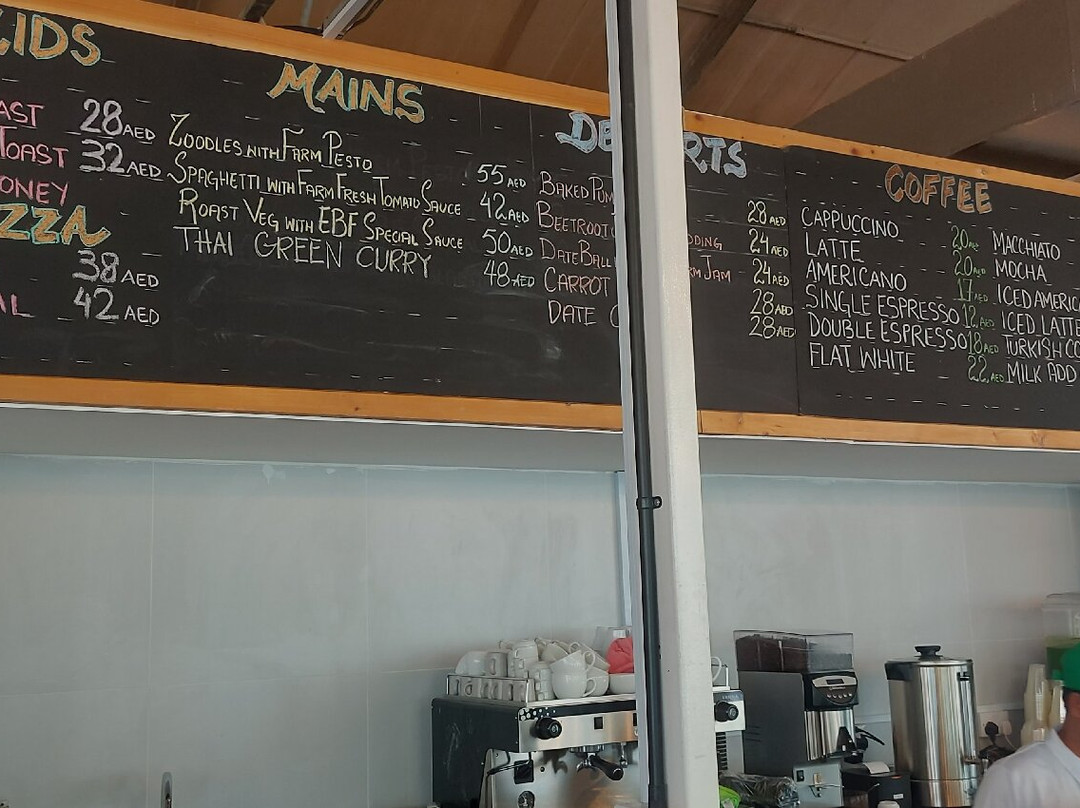 MAINS
28 AED
TOAST 32 AED
38 AED
42 AED
ZOODLES WITH FARM PESTO 55 AED
SPAGHETTI WITH FARM FRESH TOMATO SAUCE 42 AED
ROAST VEG WITH EBF SPECIAL SAUCE 50 AED
THAI GREEN CURRY 48 AED
BAKED 28 AED
24 AED
DATE BALL JAM 24 AED
CARROT 28 AED
DATE 28 AED
COFFEE
CAPPUCCINO 20 AED
LATTE 20 AED
AMERICANO 17 AED
SINGLE ESPRESSO 12 AED
DOUBLE ESPRESSO 18 AED
FLAT WHITE 22 AED
MACCHIATO
MOCHA
ICED
ICED LATTE
TURKISH
MILK ADD